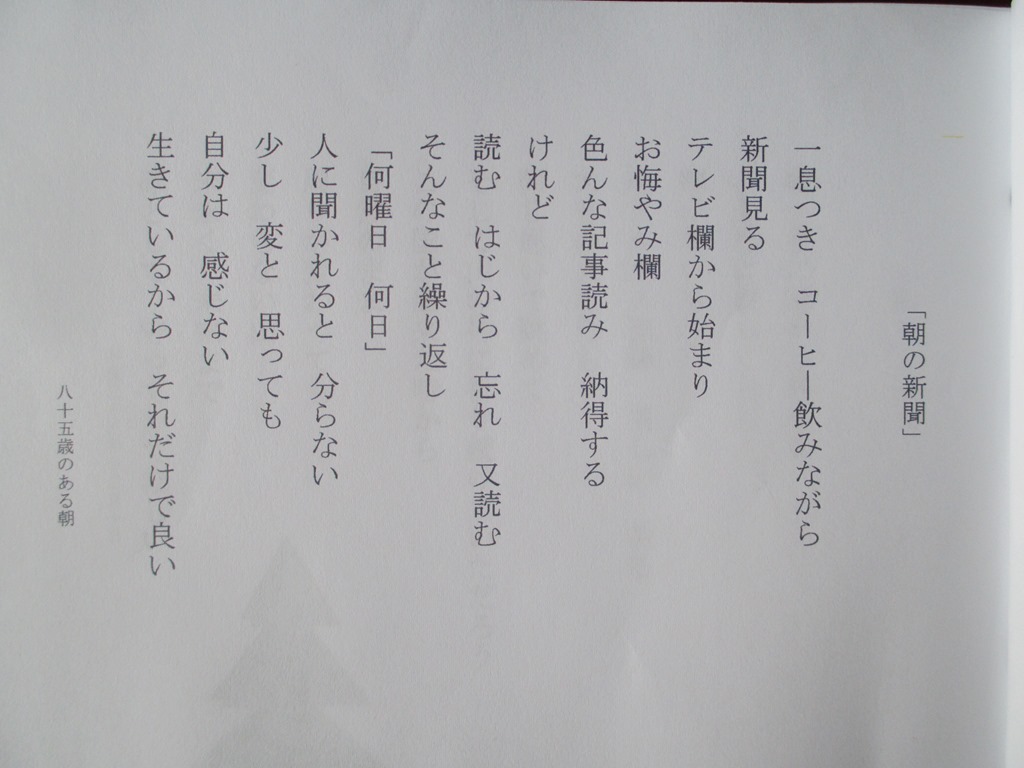 「朝の新聞」
一息つき　コーヒー飲みながら
新聞見る
テレビ欄から始まり
お悔やみ欄
色んな記事読み　納得する
けれど
読む　はじから　忘れ　又読む
そんなこと繰り返し
「何曜日　何日」
人に聞かれると　分らない
少し　変と　思っても
自分は　感じない
生きているから　それだけで良い
八十五歳のある朝